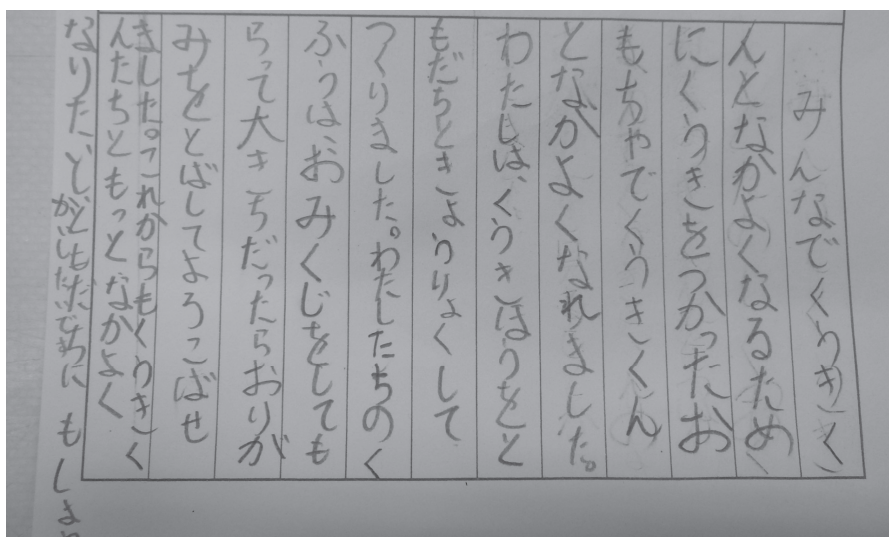 みんなでくうきく
んとなかよくなるため
にくうきをつかったお
もちゃでくうきくん
となかよくなれました。
わたしは、くうきほうをと
もだちときょうりょくして
つくりました。わたしたちのく
ふうは、おみくじをしても
らって大きちだったらおりが
みをとばしてよろこばせ
ました。これからもくうきく
んたちともっとなかよく
なりた